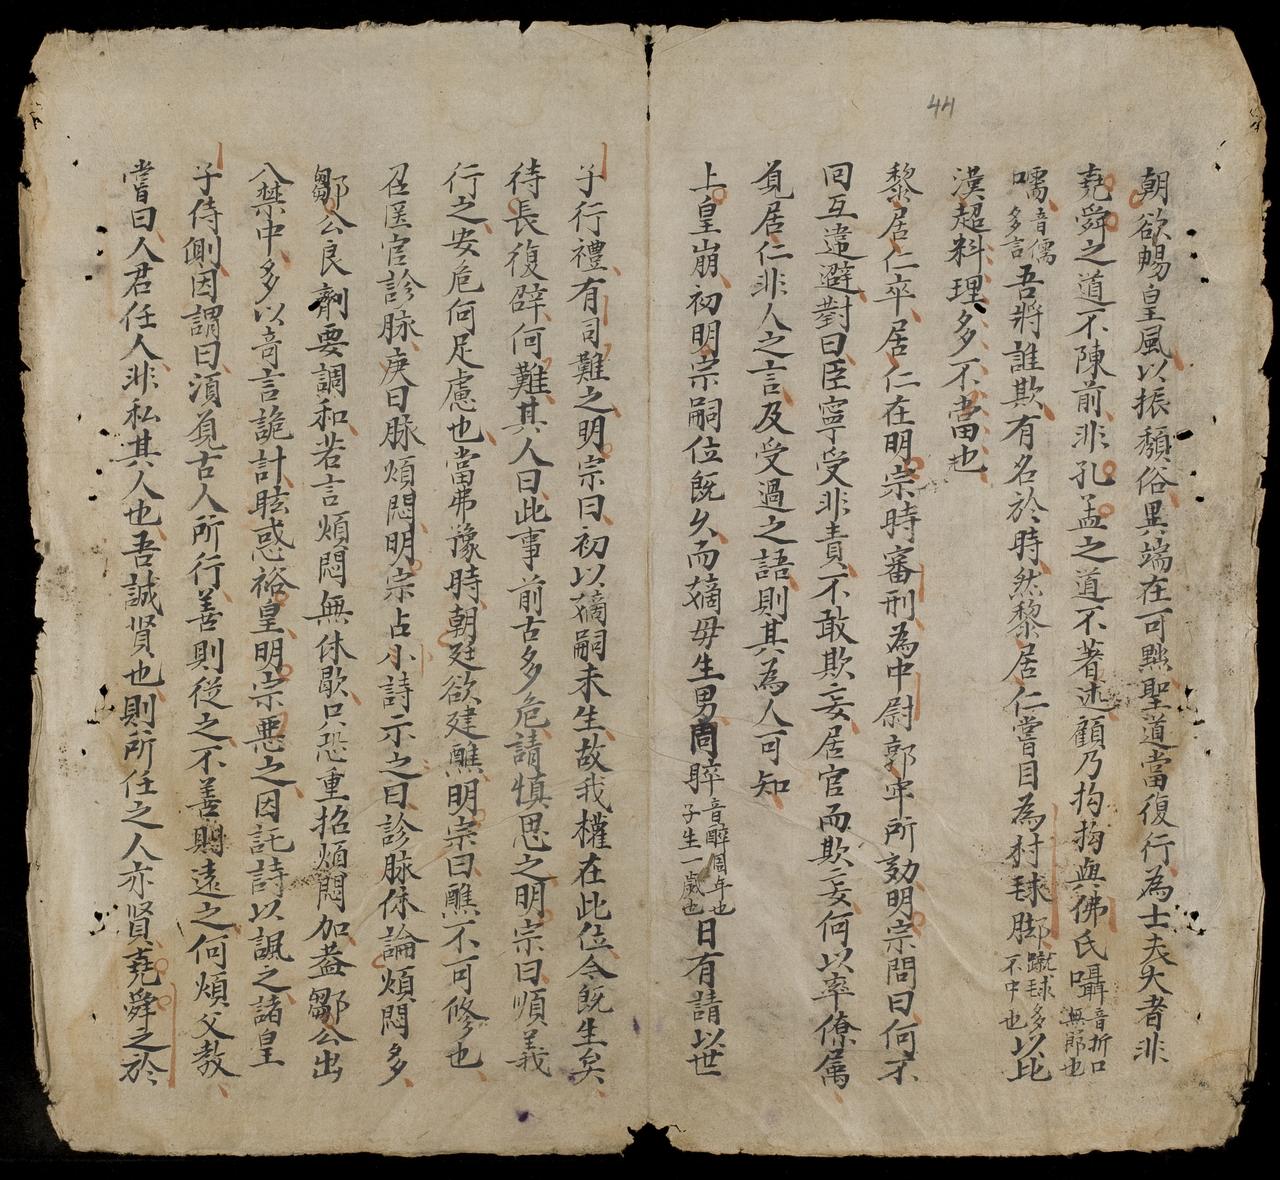 44
朝欲暢皇風以振頽俗異端在可黜聖道當復行為士夫大者非
堯舜之道不陳前非孔孟之道不著述顧乃拘拘與佛氏囁音折口無節也
嚅音儒多言吾將誰欺有名於時然黎居仁嘗目為村毬脚蹴毬多不中也以比
漢超料理多不當也
黎居仁卒居仁在明宗時審刑為中尉郭宰所劾明宗問曰何才
囘互違避對曰臣寧受非責不敢欺妄居官而欺妄何以率僚属
覓居仁非人之言及受過之語則其為人可知
上皇崩初明宗嗣位既久而嫡母生男周晬音醉周年也子生一歲也日有請以世
子行禮有司難之明宗曰初以嫡嗣未生故我權在此位今既生矣
待長復辟何難其人曰此事前古多危請慎思之明宗曰順義
行之安危何足慮也當弗豫時朝廷欲建醮明宗曰醮不可修也
召医官診脉庚曰脉煩悶明宗占小詩示之曰診脉休論煩悶多
鄒公良劑要調和若言煩悶無休歇只恐重招煩悶加蓋鄒公出
入禁中多以竒言詭計眩惑裕皇明宗悪之因託詩以諷之諸皇
子侍側因謂曰湏覓古人所行善則從之不善則遠之何煩父教
嘗曰人君任人非私其人也吾誠賢也則所任之人亦賢堯舜之於